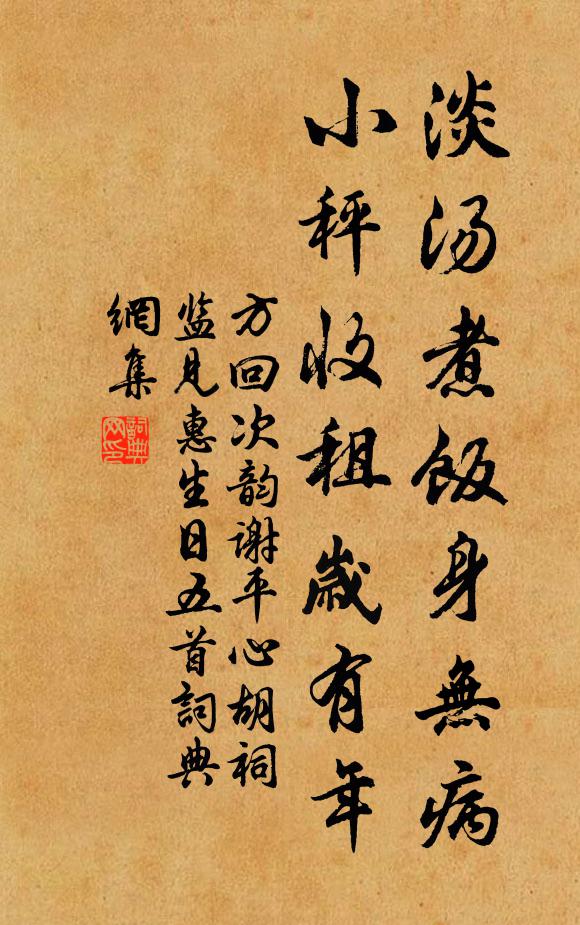 淡汤煮飯身無病
小秤收租歲有年
方回次韵谢平心胡祠
监見惠生日五首詞典
網集
詞典
网印